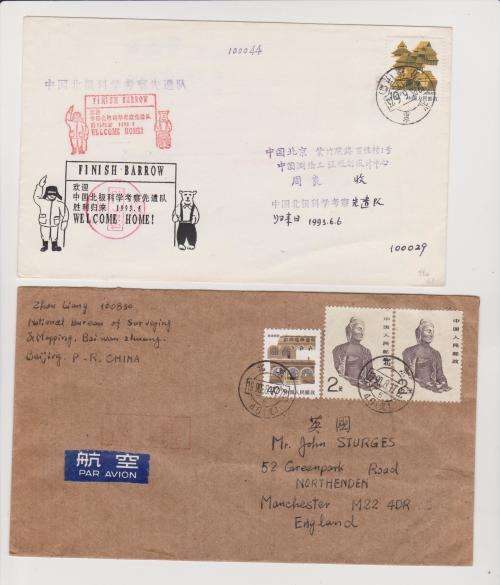 100044
中国北极科学考察先遣队
FINISH BARROW
欢迎
中国北极科学考察先遣队
胜利归来 1993.6
WELCOME HOME!
中国人民邮政
FINISH BARROW
欢迎
中国北极科学考察先遣队
胜利归来 1993.6
WELCOME HOME!
中国北京
收
中国北极科学考察先遣队
归来日 1993.6.6
100029
Zhou Liang 100830
National Bureau of Surveying
& Mapping, Bai wan zhuang.
Beijing P. R. CHINA
航空
PAR AVION
中国人民邮政
2元
中国人民邮政
中国人民邮政
英國
Mr. John STURGES
52 Greenpark Road
NORTHENDEN
Manchester M22 4DR
England